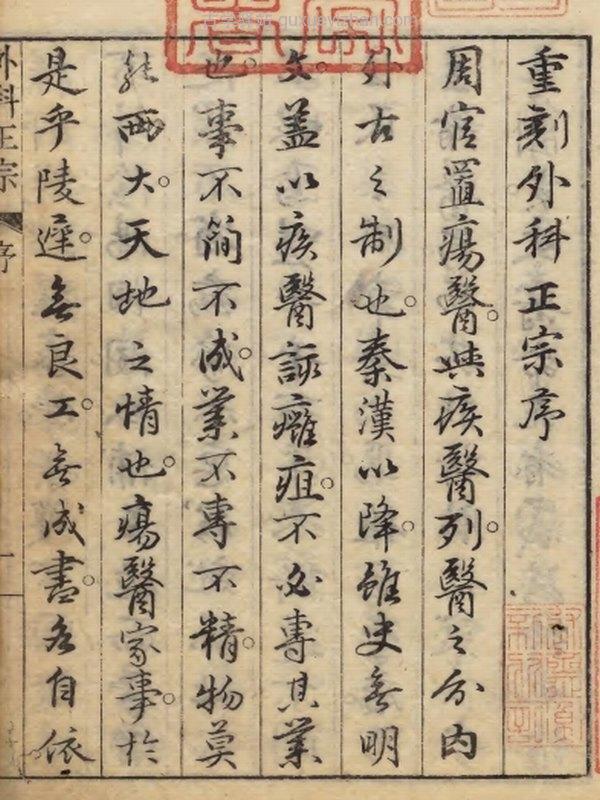 重刻外科正宗序
周官置瘍醫。與疾醫列。醫之分內
外古之制也。秦漢以降。雖史無明
文。蓋以疾醫諏癰疽。不必專其業
也。事不簡不成。業不專不精。物莫
能兩大。天地之情也。瘍醫家事。於
是乎陵遲。無良工。無成書。各自依
外科正宗
序
一
guxueyizhan.com